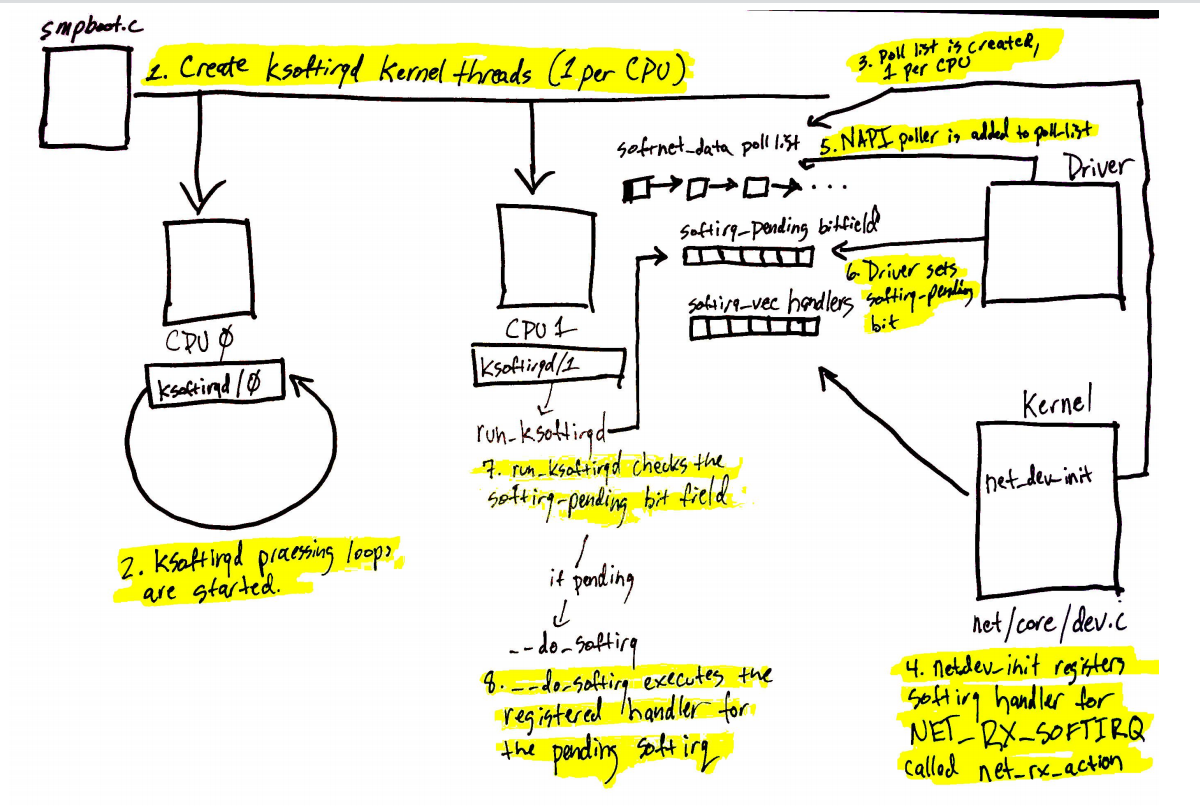 smpboot.c
1. Create ksoftirqd kernel threads (1 per CPU)
3. Poll list is created,
1 per CPU
softnet_data poll list
5. NAPI poller is added to poll-list
Driver
...
softirq_pending bitfield
6. Driver sets
softirq-pending
bit
softirq_vec handlers
CPU 0
ksoftirqd/0
2. ksoftirqd processing loops
are started.
CPU 1
ksoftirqd/1
run_ksoftirqd
7. run_ksoftirqd checks the
softirq-pending bit field
if pending
__do_softirq
8. __do_softirq executes the
registered handler for
the pending softirq
Kernel
net_dev_init
net/core/dev.c
4. netdev_init registers
softirq handler for
NET_RX_SOFTIRQ
called net_rx_action